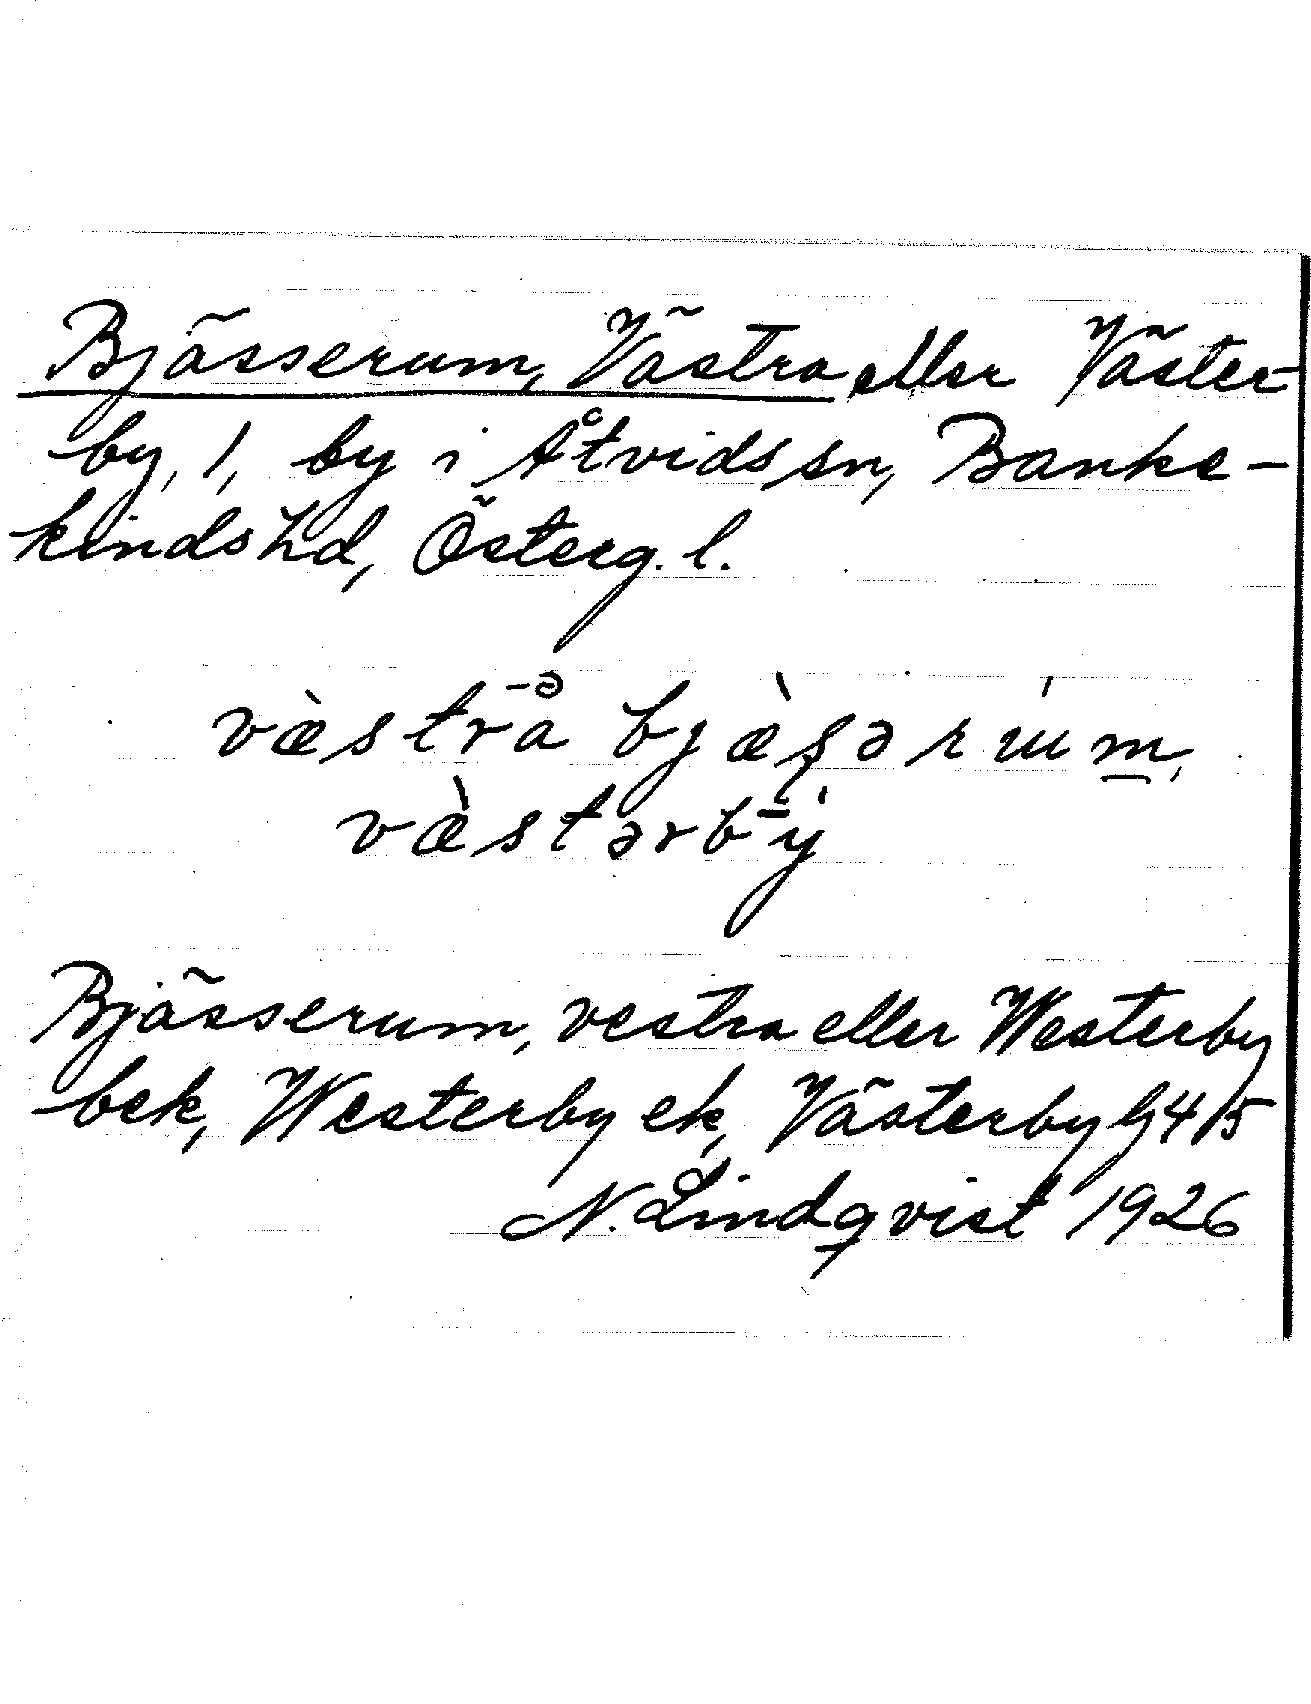 Bjässerum, Västra eller Väster-
by, 1, by i Åtvids sn, Banke-
kinds hd, Österg. l.
væ̀strå bjæ̀sərum,
væ̀stərbȳ
Bjässerum, vestra eller Westerby
bek, Westerby ek, Västerby Gj 4/5
N. Lindqvist 1926